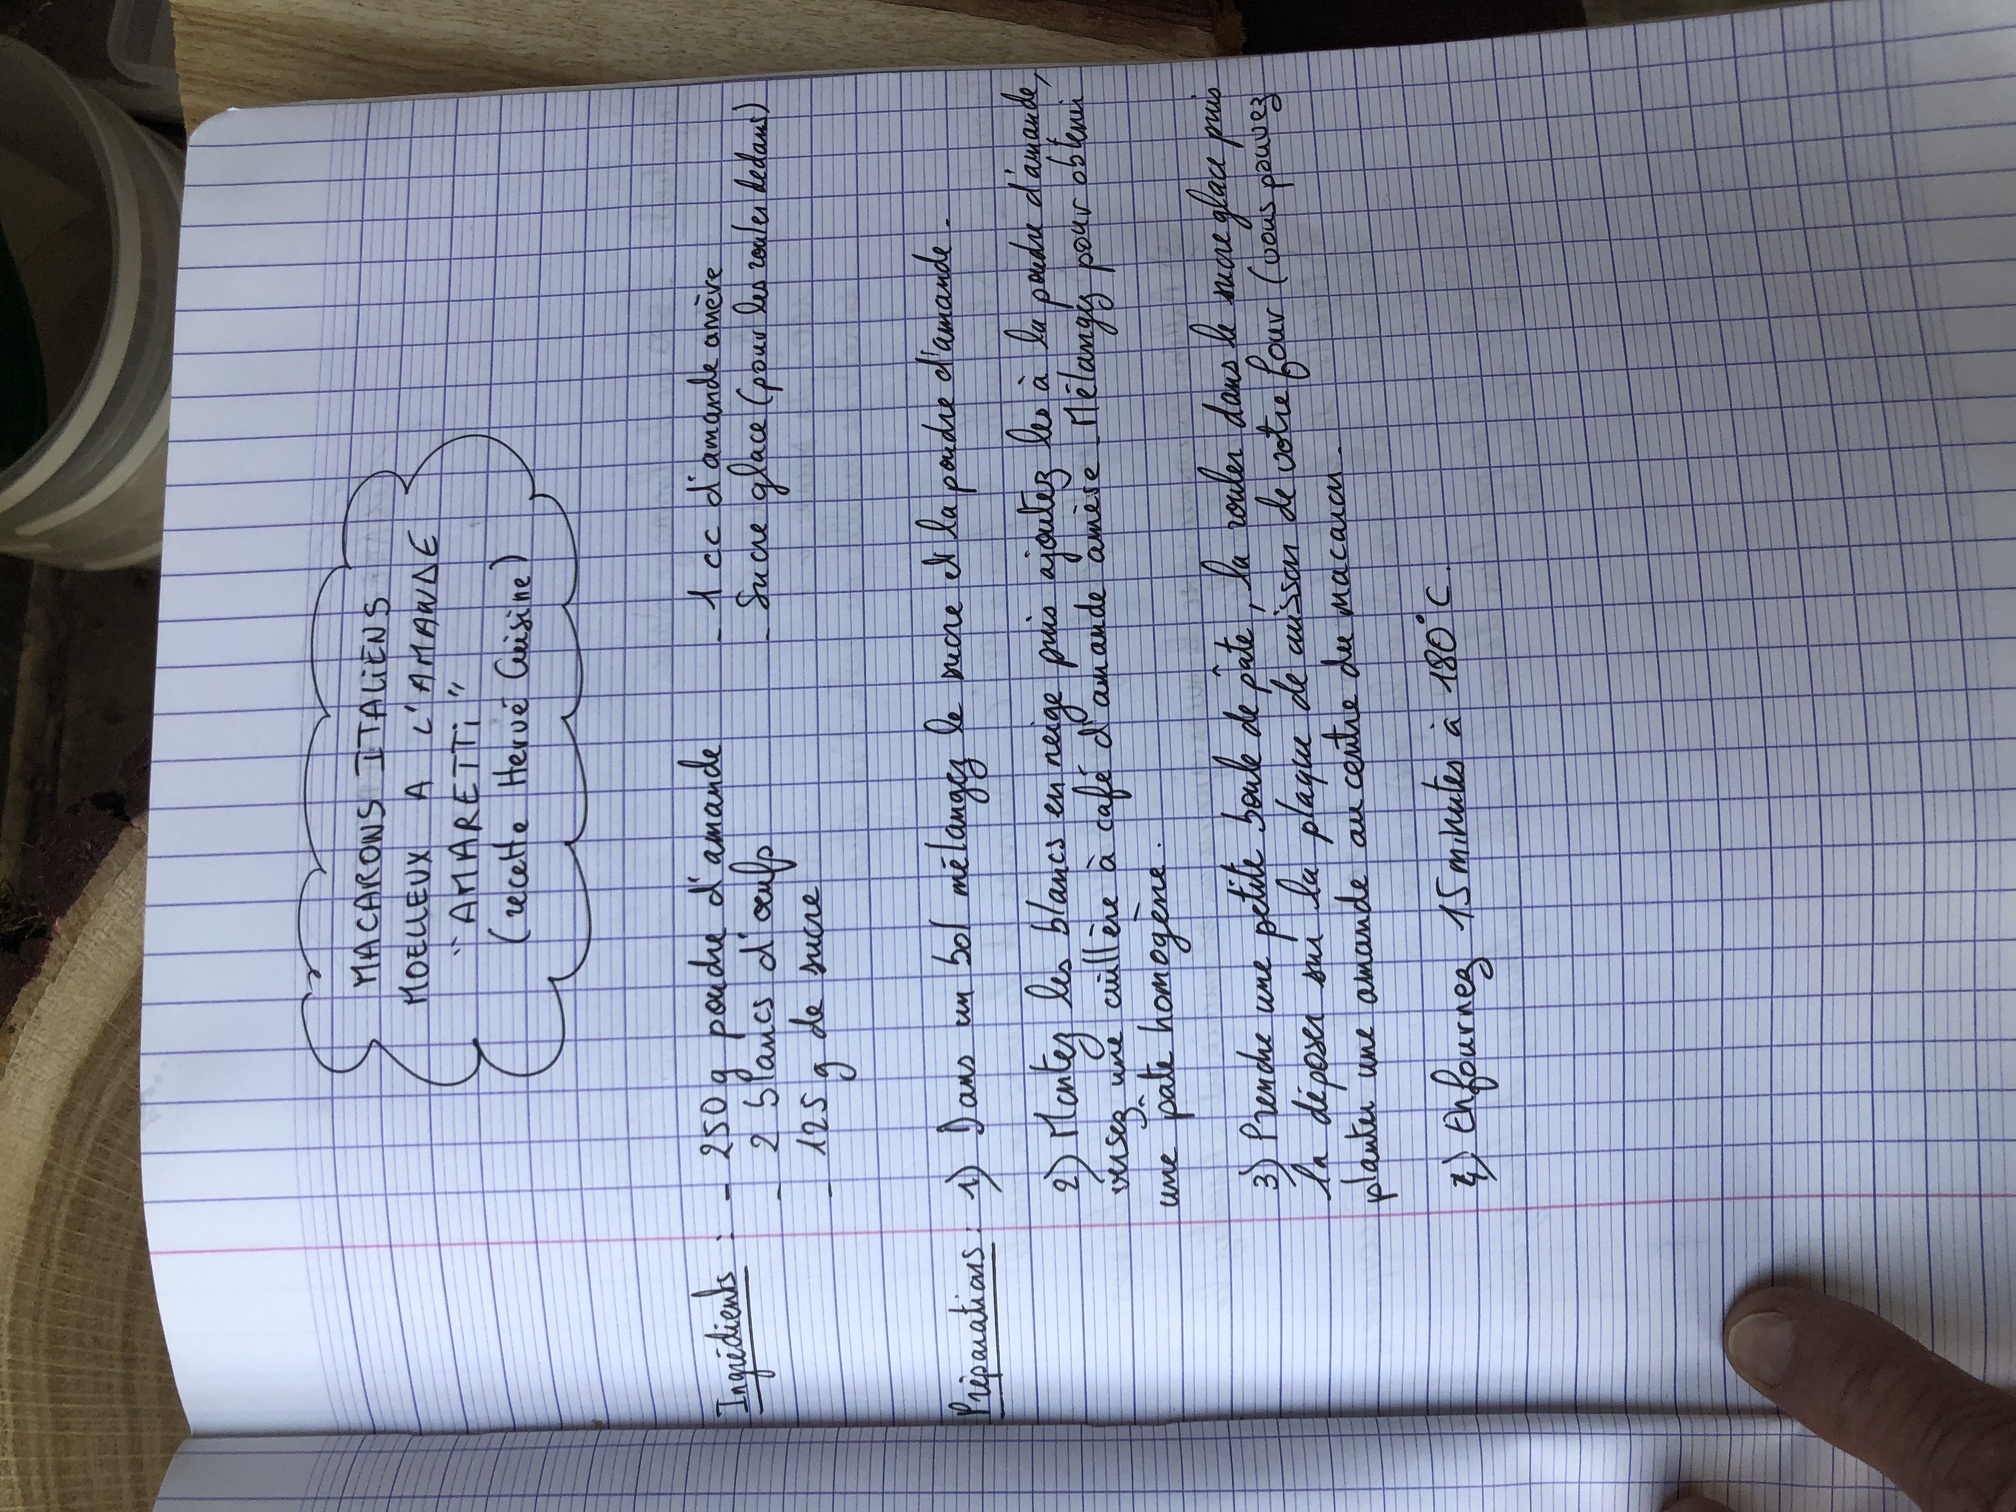 MACARONS ITALIENS
MOELLEUX A L'AMANDE
"AMARETTI"
(recette Hervé Cuisine)
Ingrédients : - 250 g poudre d'amande - 1 cc d'amande amère
- 2 blancs d'oeufs - Sucre glace (pour les rouler dedans)
- 125 g de sucre
Préparations : 1) Dans un bol mélangez le sucre et la poudre d'amande.
2) Montez les blancs en neige puis ajoutez les à la poudre d'amande,
versez une cuillère à café d'amande amère. Mélangez pour obtenir
une pâte homogène.
3) Prendre une petite boule de pâte, la rouler dans le sucre glace puis
la déposer sur la plaque de cuisson de votre four (vous pouvez
planter une amande au centre du macaron.
4) Enfournez 15 minutes à 180°C.